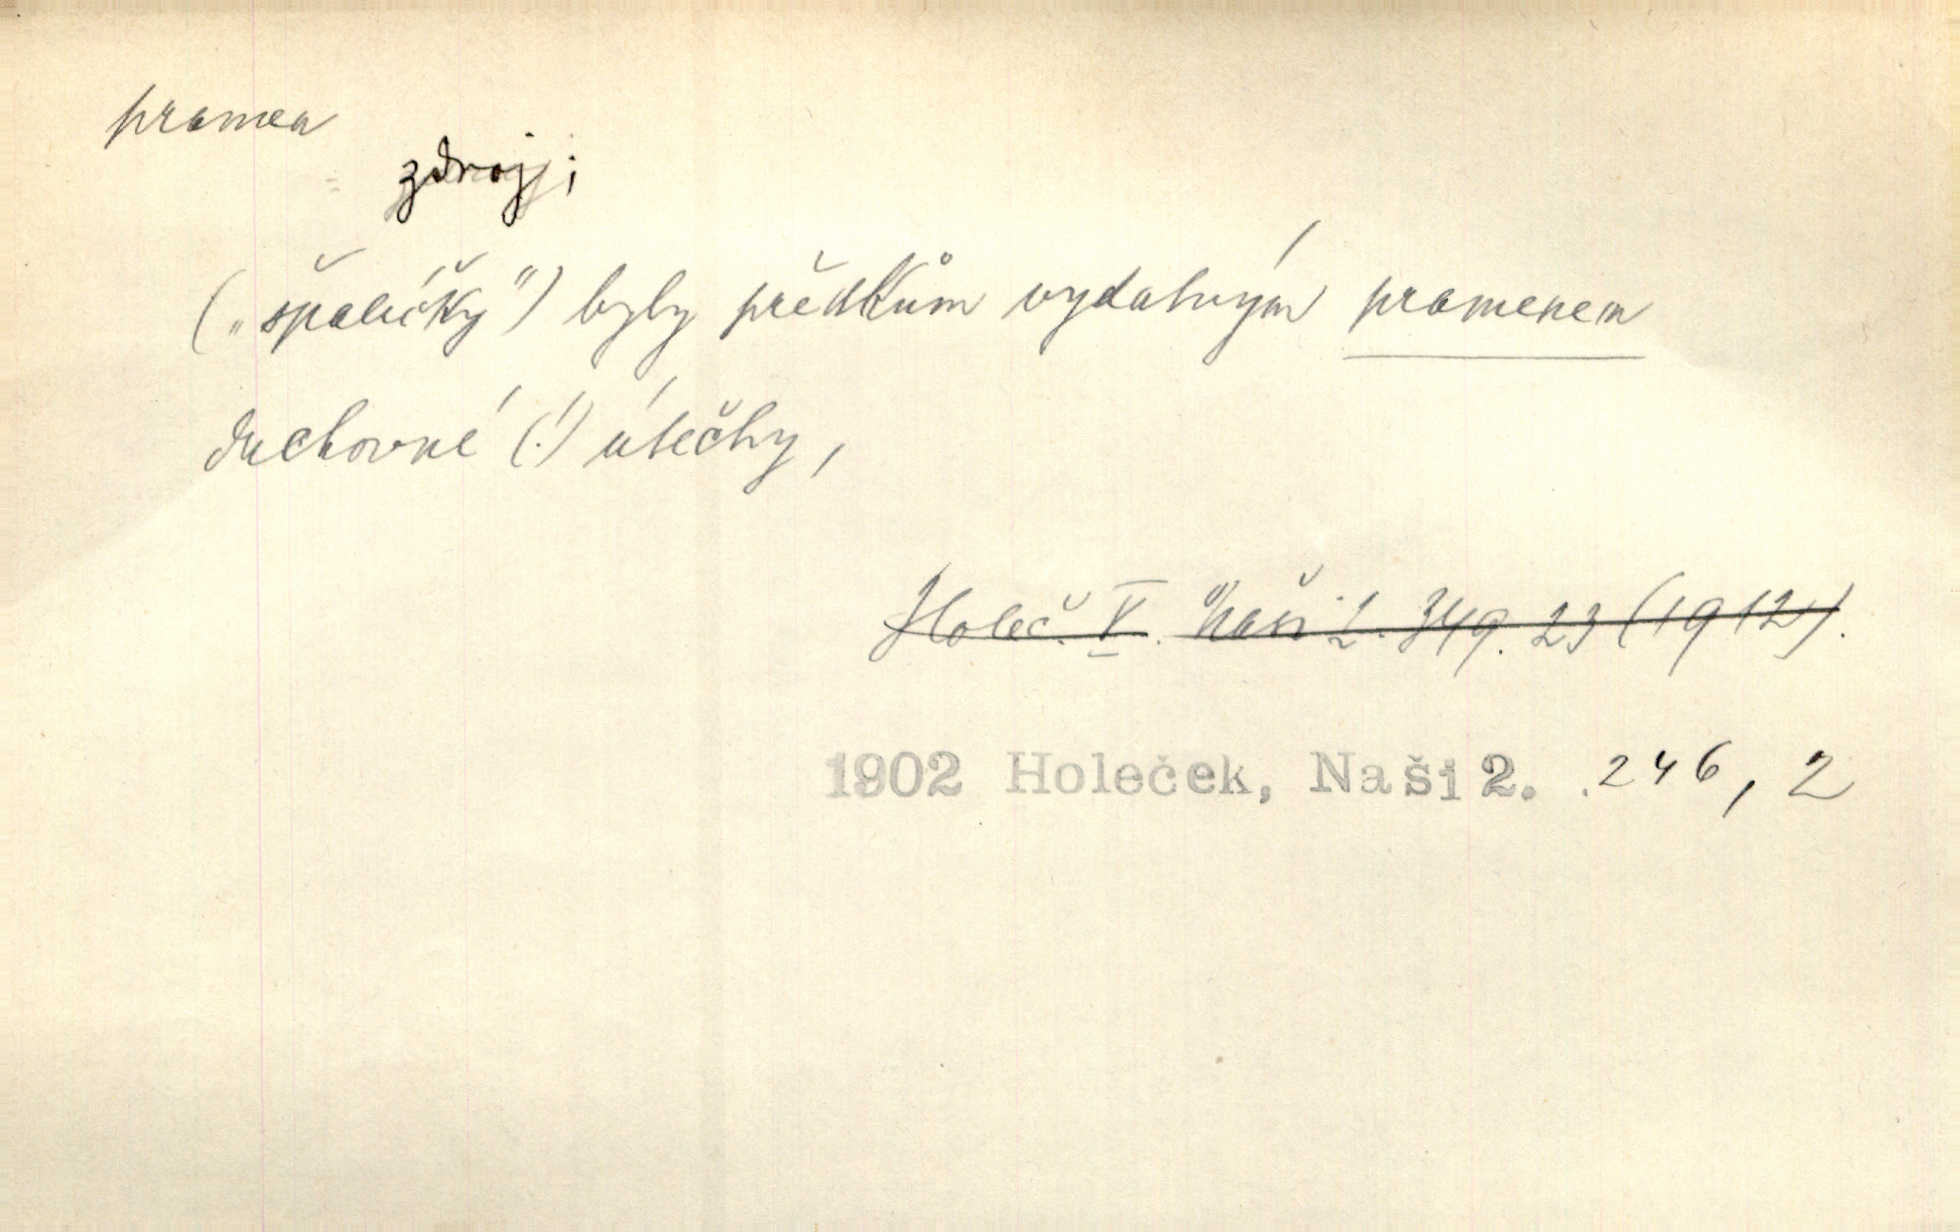 pramen
zdroj;
(„špalíčky“) byly předkům vydatným pramenem
duchovné (!) útěchy,
Holeč. V. Naši 2. 349. 23 (1912).
1902 Holeček, Naši 2. 246, 2